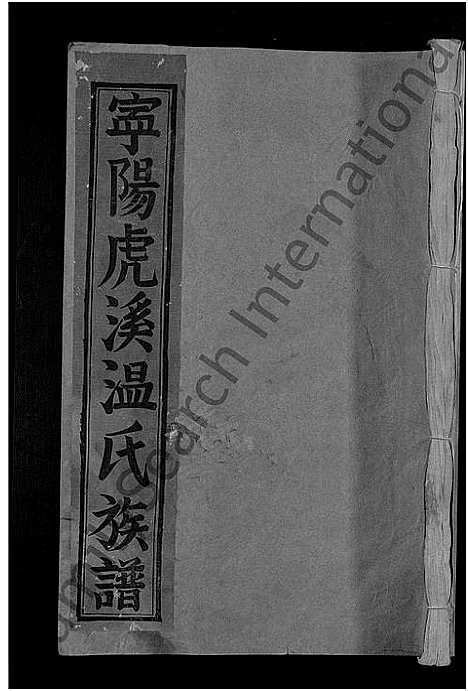 寧陽虎溪温氏族譜
search International